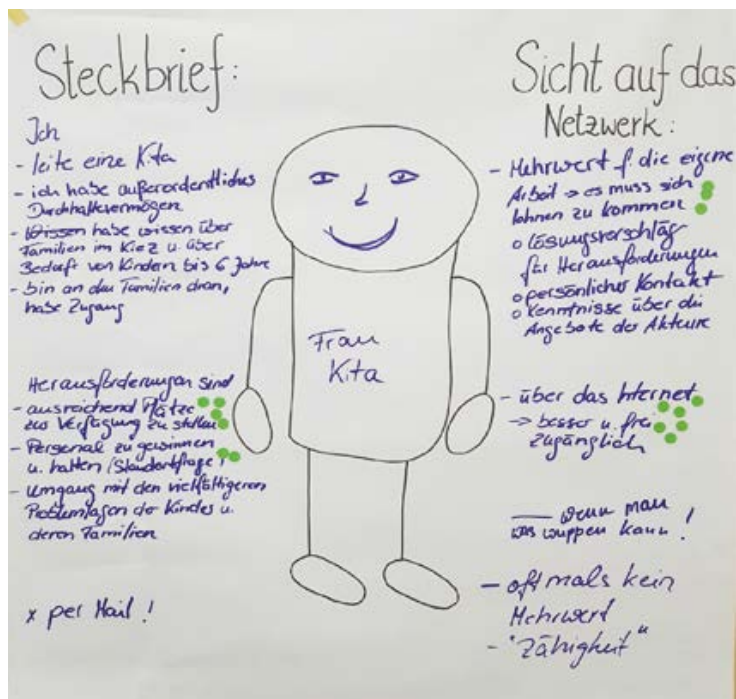 Steckbrief:
Ich
- leite eine Kita
- ich habe außerordentliches
Durchhaltevermögen
- Wissen habe wissen über
Familien im Kiez u. über
Bedarf von Kindern bis 6 Jahre
- bin an den Familien dran,
habe Zugang
Herausforderungen sind
- ausreichend Plätze
zur Verfügung zu stellen
- Personal zu gewinnen
u. halten (Standortfrage)
- Umgang mit den vielfältigeren
Problemlagen der Kindes u.
deren Familien
x per Mail !
Frau
Kita
Sicht auf das
Netzwerk:
- Mehrwert f. die eigene
Arbeit → es muss sich
lohnen zu kommen
o Lösungsvorschläg
für Herausforderungen
o persönlicher Kontakt
o Kenntnisse über die
Angebote der Akteure
- über das Internet
→ besser u. frei
zugänglich
— wenn man
was wuppen kann !
- oftmals kein
Mehrwert
- "Zähigkeit"